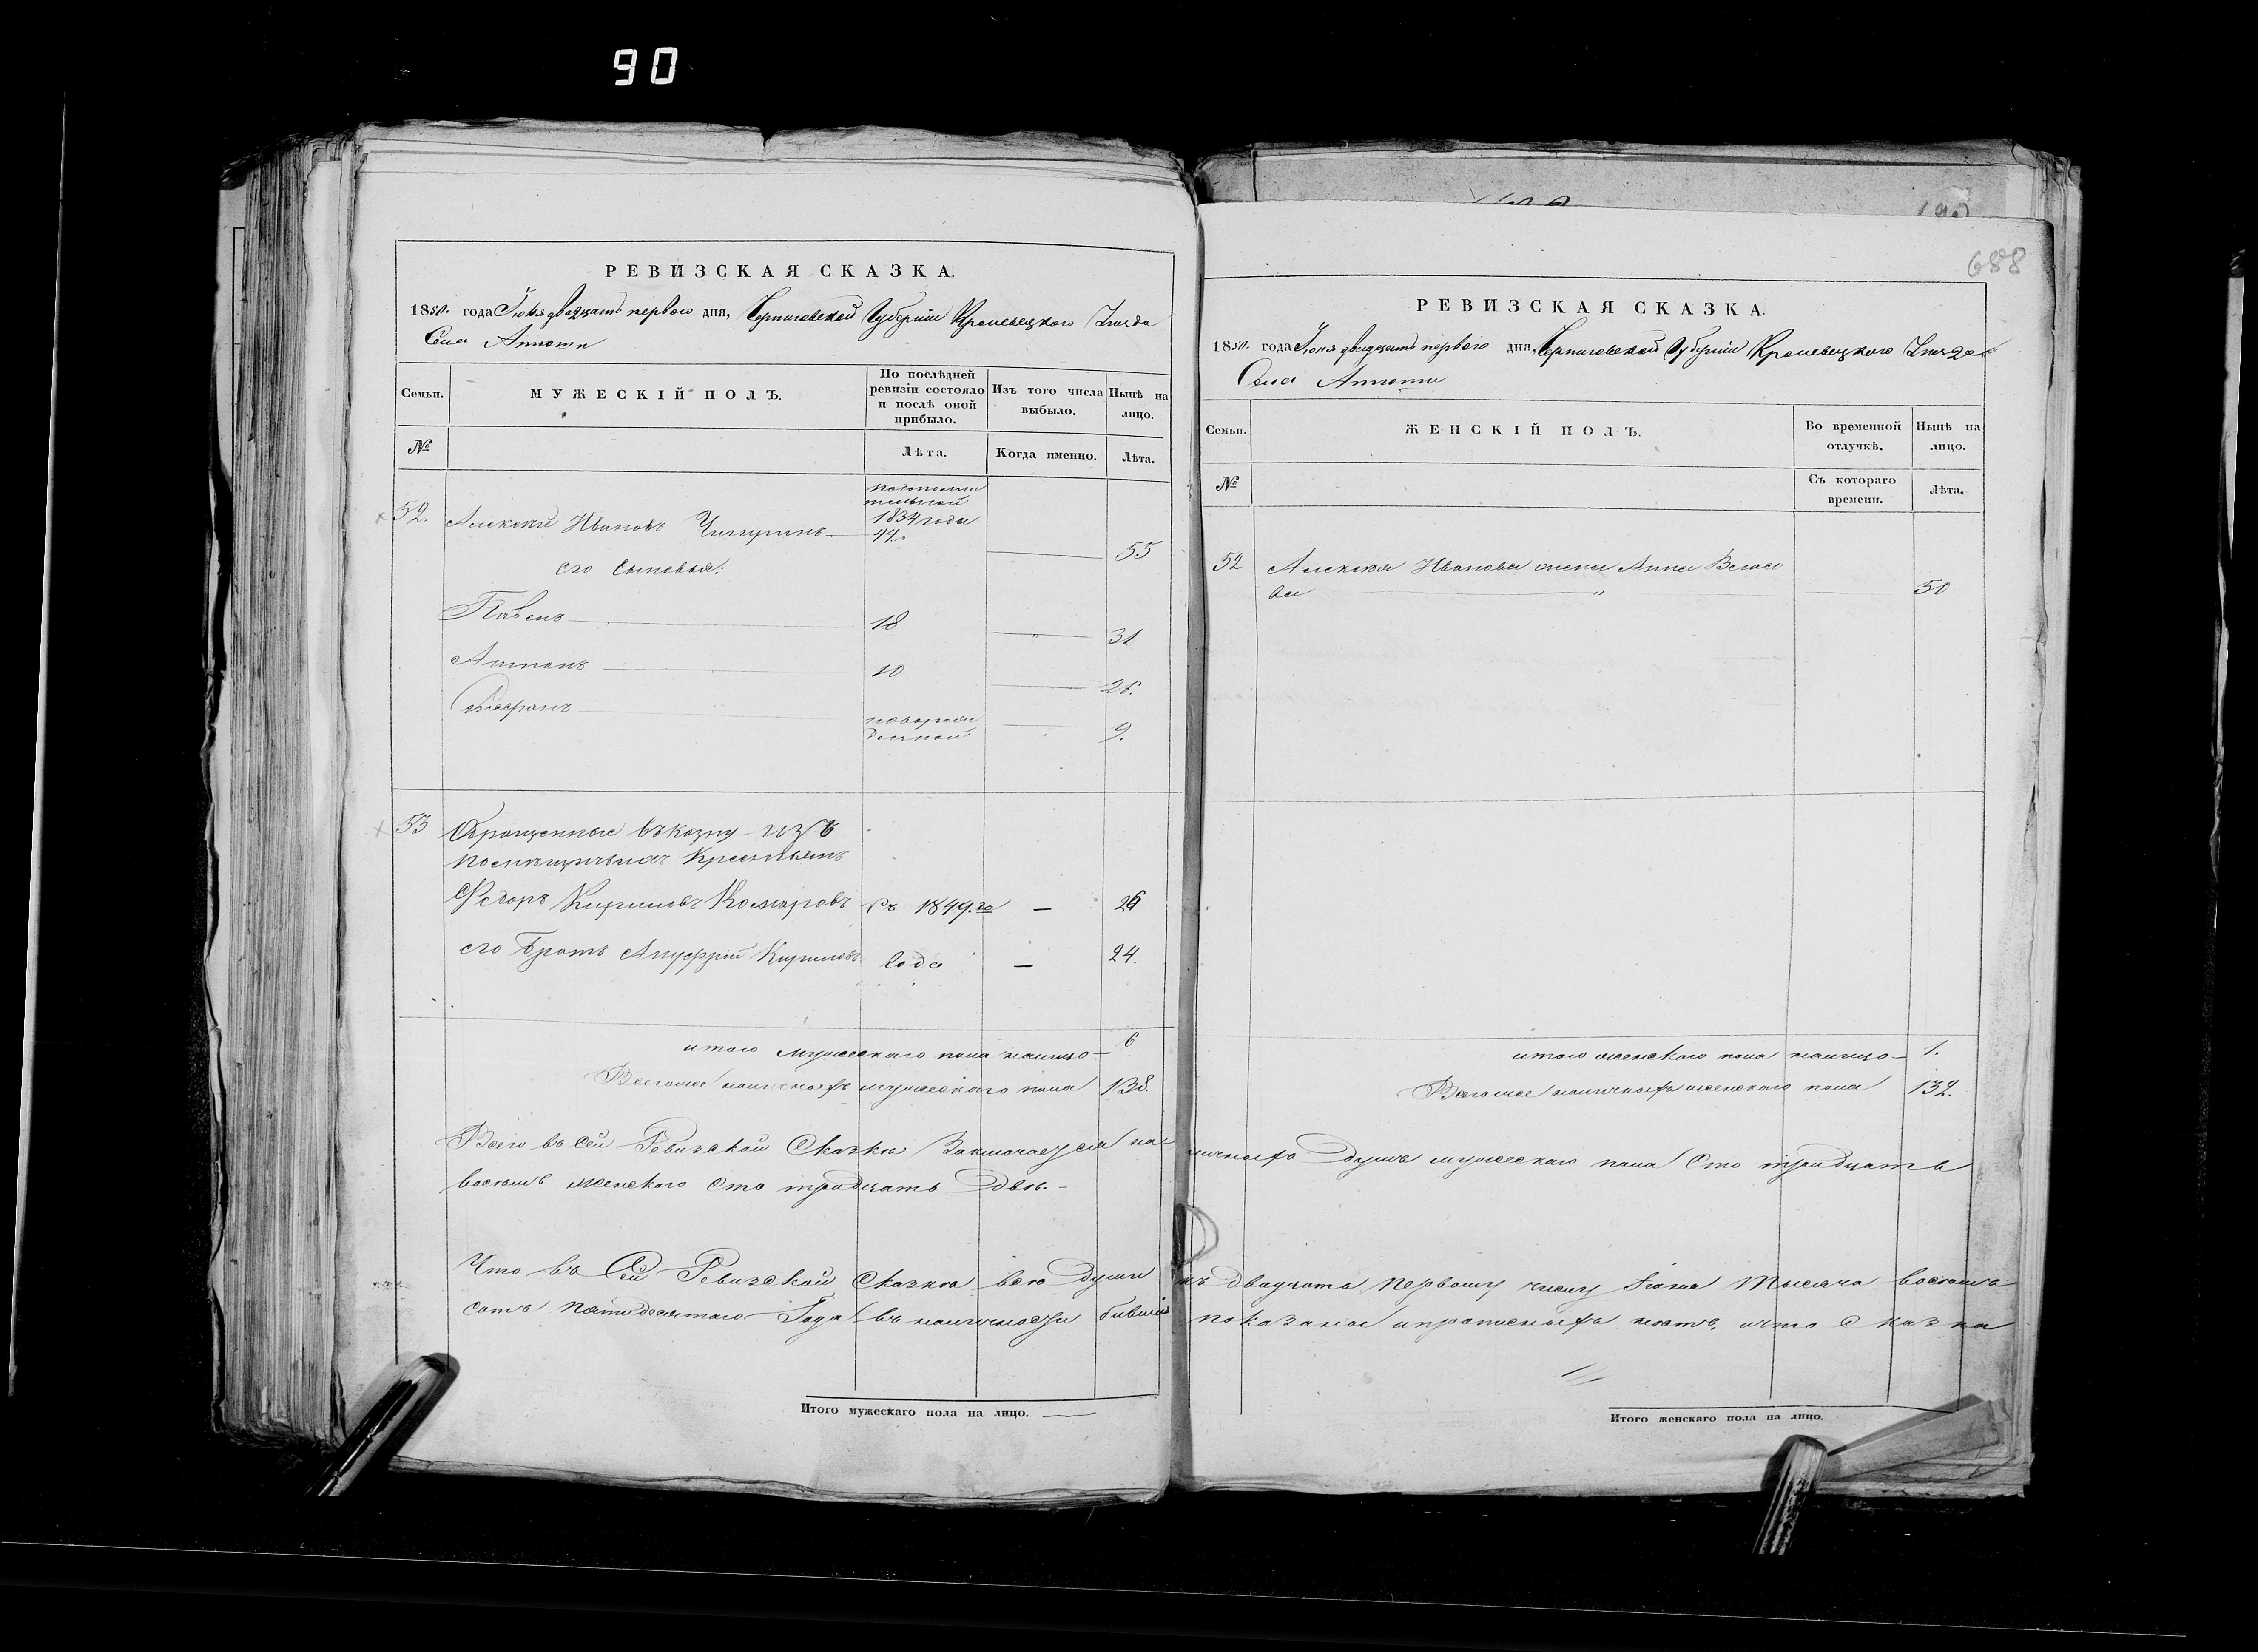 90
РЕВИЗСКАЯ СКАЗКА.
1850. года Іюня двадцать первого дня, Черниговской Губерніи Кролевецкого Уѣзда
Села
Семьи.
МУЖЕСКІЙ ПОЛЪ.
По послѣдней ревизіи состояло и послѣ оной прибыло.
Изъ того числа выбыло.
Нынѣ на лицо.
№
Лѣта.
Когда именно.
Лѣта.
52.
Алексѣй Ивановъ
1834 года
44.
55
его Сыновья:
Павелъ
18
31
Антонъ
10
26.
новорож
денной
9.
53
Обращенные въ казну изъ
помещичьихъ Крестьянъ
Федоръ Кириловъ Комаровъ
съ 1849.го
—
26
его Братъ Ануфрій Кириловъ
года
—
24.
итого мужескаго пола налицо —
6
Всего же наличныхъ мужескаго пола
138.
688
РЕВИЗСКАЯ СКАЗКА.
1850. года Іюня двадцать первого дня, Черниговской Губерніи Кролевецкого Уѣзда
Села
Семьи.
ЖЕНСКІЙ ПОЛЪ.
Во временной отлучкѣ.
Нынѣ на лицо.
№
Съ котораго времени.
Лѣта.
52
Алексѣя Иванова жена Анна Власо
ва
50
итого женскаго пола налицо —
1.
Всего же наличныхъ женскаго пола
132.
Всего въ сей Ревизской Сказкѣ Заключается наличныхъ Душъ мужескаго пола Сто тридцать
восемь женского Сто тридцать Двѣ. –
Что въ Сей Ревизской Сказкѣ всѣ Души къ двадцать первому числу Іюня Тысяча восемь
сотъ пятидесятого Года въ наличности бывшіе показаны и прописныхъ нѣтъ, и что Сказка
Итого мужескаго пола на лицо.
Итого женскаго пола на лицо.